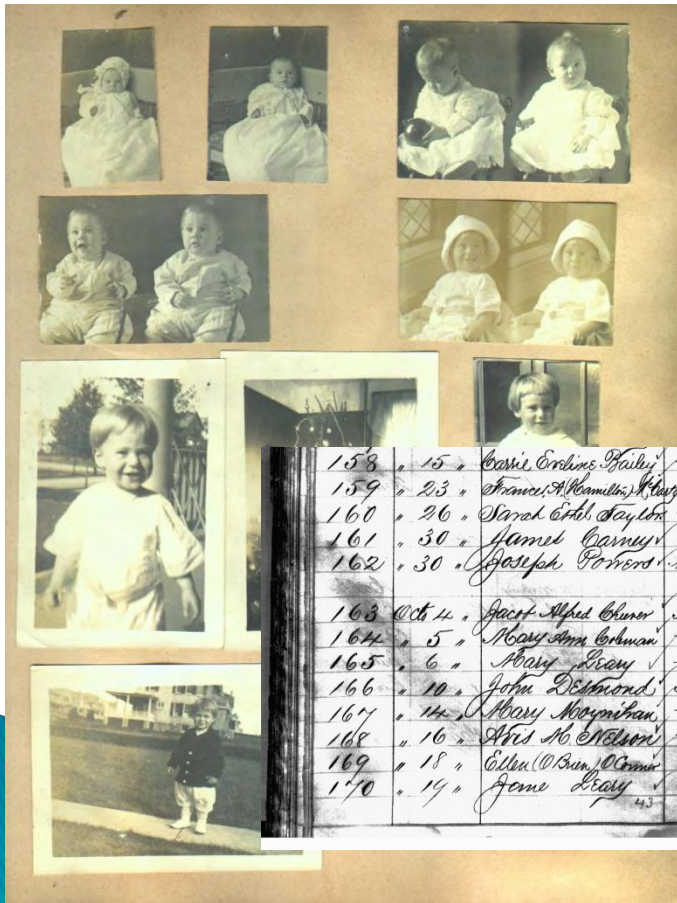 158 " 15 " Carrie Eveline Bailey
159 " 23 " Frances A (Hamilton)
160 " 26 " Sarah Ethel Taylor
161 " 30 " James Carney
162 " 30 " Joseph Powers
163 Oct 4 " Jacob Alfred Cheever
164 " 5 " Mary Ann Coleman
165 " 6 " Mary Leary
166 " 10 " John Desmond
167 " 14 " Mary Moynihan
168 " 16 " Avis M. Nelson
169 " 18 " Ellen (O'Brien) O'Connor
170 " 19 " Jane Leary
43